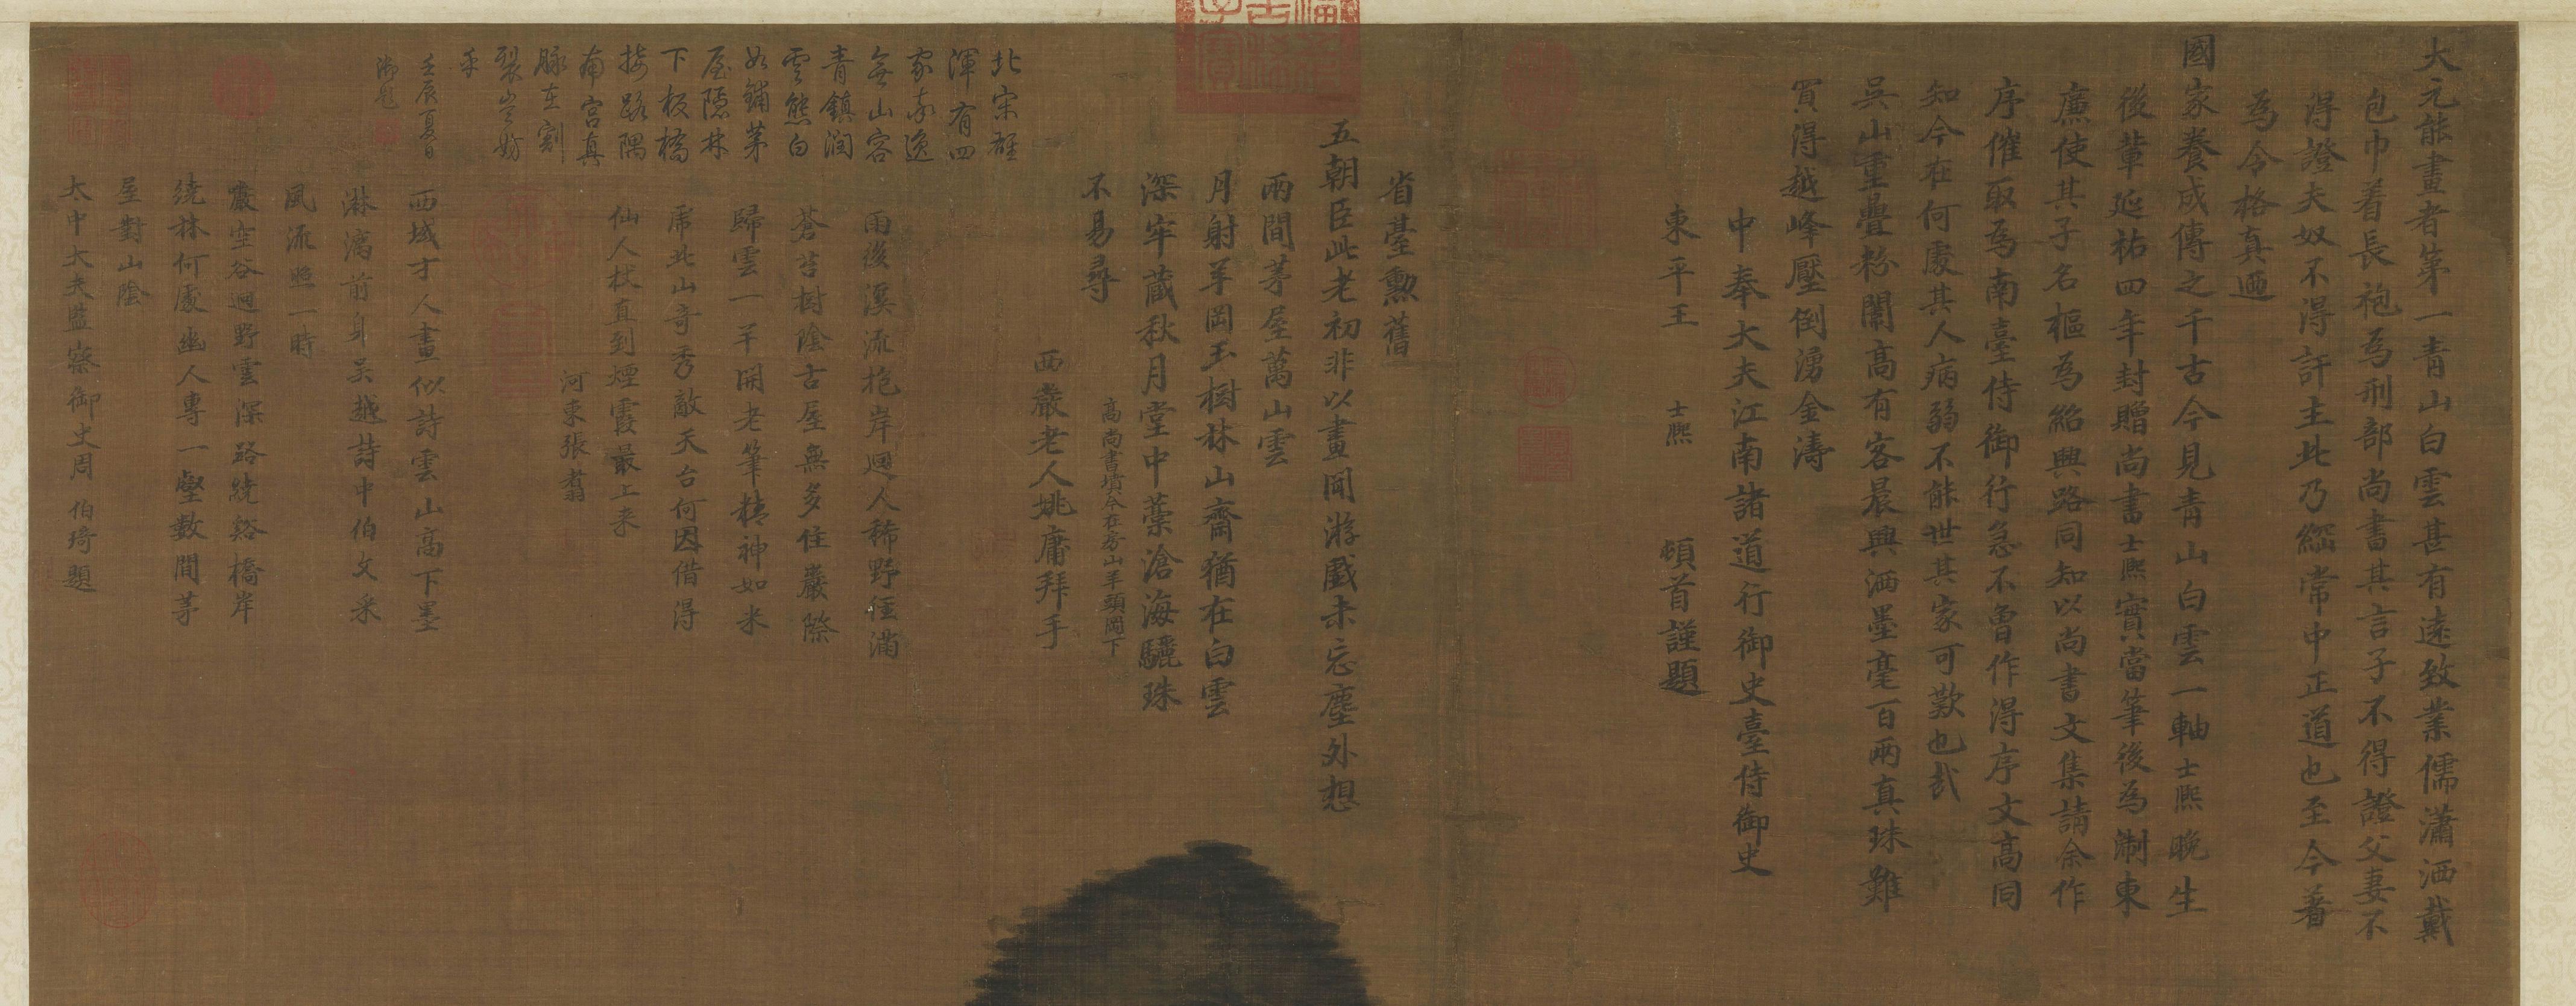 大元能畫者第一青山白雲甚有遠致業儒瀟洒戴
包巾着長袍為刑部尚書其言子不得證父妻不
得證夫奴不得訐主此乃經常中正道也至今著
為令格真迺
國家養成傳之千古今見青山白雲一軸士熙晚生
後輩延祐四年封贈尚書士熙實當筆後為淛東
廉使其子名樞為紹興路同知以尚書文集請余作
序催取為南臺侍御行急不曾作得序文高同
知今在何處其人病弱不能世其家可歎也哉
吳山重疊粉闈高有客晨興洒墨毫百兩真珠難
買得越峰壓倒湧金濤
中奉大夫江南諸道行御史臺侍御史
東平王士熙頓首謹題
省臺勳舊
五朝臣此老初非以畫聞游戲未忘塵外想
兩間茅屋萬山雲
月射羊岡玉樹林山齋猶在白雲
深牢藏秋月堂中藁滄海驪珠
不易尋
高尚書墳今在房山羊頭岡下
西巖老人姚庸拜手
北宋碓
渾有四
家南逸
無山容
青鎮潤
雲態白
如鋪茅
屋隱林
下板橋
接路隅
南宮真
脉在割
裂豈妨
乎
壬辰夏日
御題
雨後溪流抱岸迴人稀野徑滿
蒼苔樹陰古屋無多住巖際
歸雲一半開老筆精神如米
虎此山奇秀敵天台何因借得
仙人杖直到煙霞最上來
河東張翥
西域才人畫似詩雲山高下墨
淋漓前身吳越詩中伯文采
風流照一時
巖空谷迴野雲深路繞谿橋岸
繞林何處幽人專一壑數間茅
屋對山陰
太中大夫監察御史周伯琦題